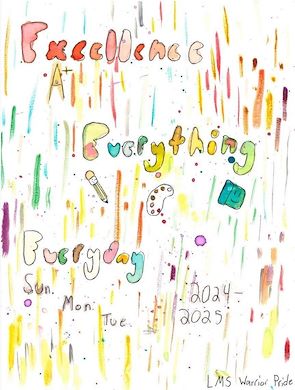 Excellence
A+
Everything
Everyday
Sun.
Mon.
Tue.
2024-
2025
LMS Warrior Pride